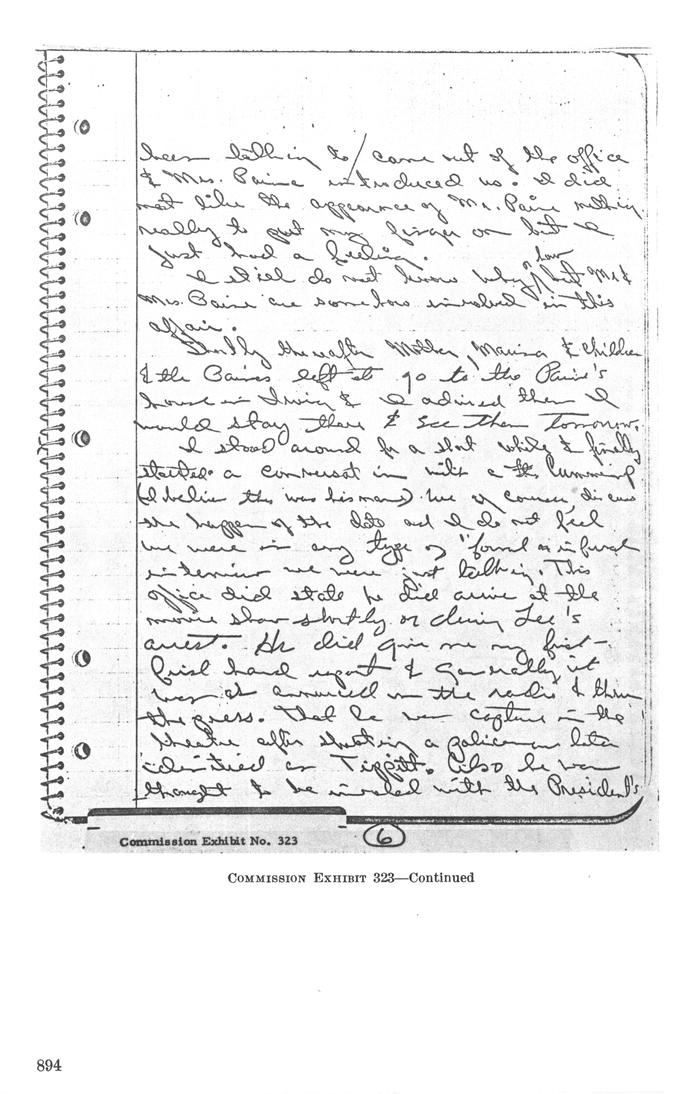 been talking to / came out of the office
& Mrs. Paine introduced us. I did
not like the appearance of Mr. Paine nothing
really to put my finger on but I
just had a feeling.
how
I still do not know why, but Mr &
Mrs. Paine are somehow involved in this
affair.
Shortly thereafter Mother, Marina & children
& the Paines left to go to the Paine's
house in Irving & I advised them I
would stay there & see them tomorrow.
I stood around for a short while & finally
started a conversation with a Cummings
(I believe this was his name) We of course discuss
the happen of the date and I do not feel
we were in any type of "formal or informal
interview we were just talking. This
office did state he did arrive at the
movie show shortly or during Lee's
arrest. He did give me my first-
first hand report & generally it
was as announced on the radio & then
the press. That he was capture in the
theatre after shooting a policeman later
identified as Tippitt. Also he was
thought to be involed with the President's
Commission Exhibit No. 323
6
COMMISSION EXHIBIT 323—Continued
894